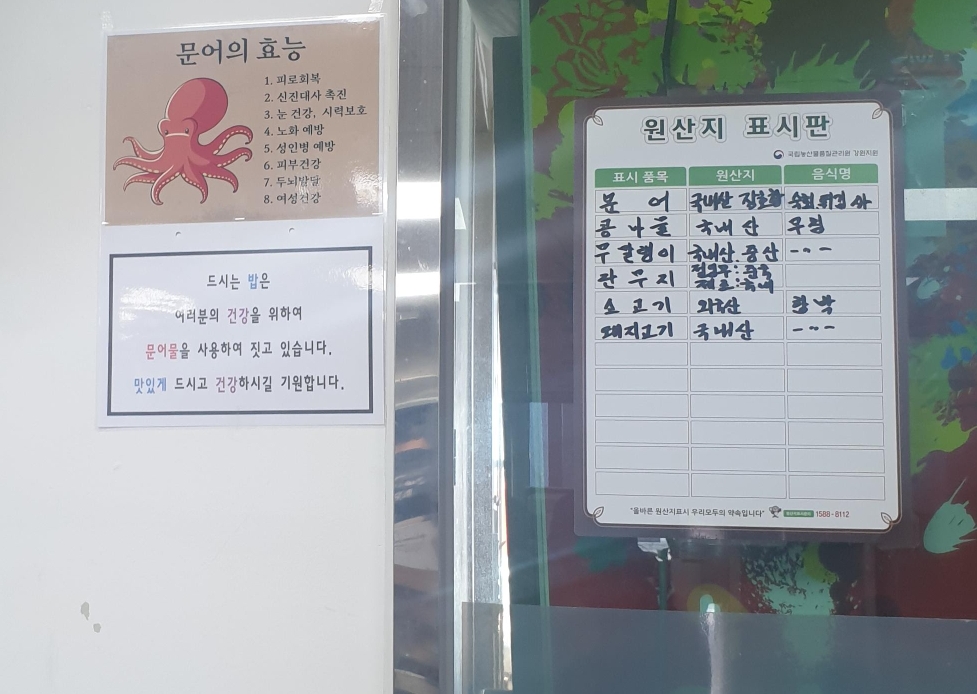 문어의 효능
1. 피로회복
2. 신진대사 촉진
3. 눈 건강, 시력보호
4. 노화 예방
5. 성인병 예방
6. 피부건강
7. 두뇌발달
8. 여성건강
드시는 밥은
여러분의 건강을 위하여
문어물을 사용하여 짓고 있습니다.
맛있게 드시고 건강하시길 기원합니다.
원산지 표시판
국립농산물품질관리원 강원지원
표시 품목 원산지 음식명
문어 국내산
콩나물 국내산
무말랭이 국내산
단무지
소고기
돼지고기 국내산 ---
"올바른 원산지표시 우리모두의 약속입니다" 1588-8112